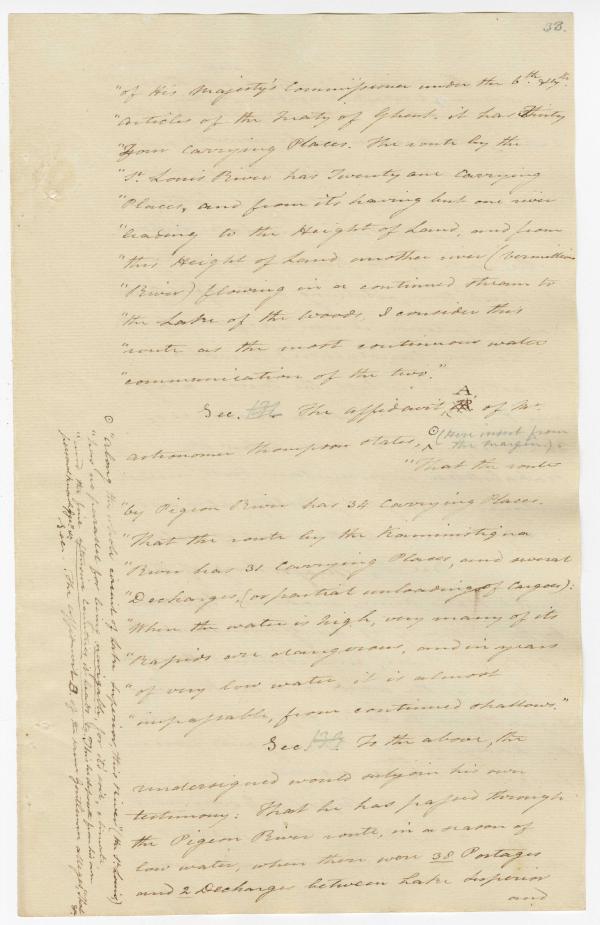 33.
"of His Majesty's Commissioner under the 6th & 7th
"articles of the Treaty of Ghent. it has Thirty
"Four Carrying Places. The route by the
"St. Louis River has Twenty one Carrying
"Places, and from it's having but one river
"leading to the Height of Land, and from
"this Height of Land another river (Vermillion
"River) flowing in a continued stream to
"the Lake of the Woods, I consider this
"route as the most continuous water
"communication of the two."
Sec. The affidavit, A of Mr.
astronomer Thompson states, (Here insert from
the margin).
"That the route
"by Pigeon River has 34 Carrying Places.
"That the route by the Kaministiqua
"River has 31 Carrying Places, and several
"Decharges, (or partial unloading of Cargoes):
"When the water is high, very many of its
"Rapids are dangerous, and in years
"of very low water, it is almost
"impassable, from continued shallows."
Sec. To the above, the
undersigned would subjoin his own
testimony: That he has passed through
the Pigeon River route, in a season of
low water, when there were 38 Portages
and 2 Decharges between Lake Superior
and
"along the whole circuit of Lake Superior, this River" (the St. Louis)
"has no parallel for being navigable, for it's size, climate
"and the fine extensive countries it leads to.
Sec. The affidavit B. of the same Gentleman alleges, that